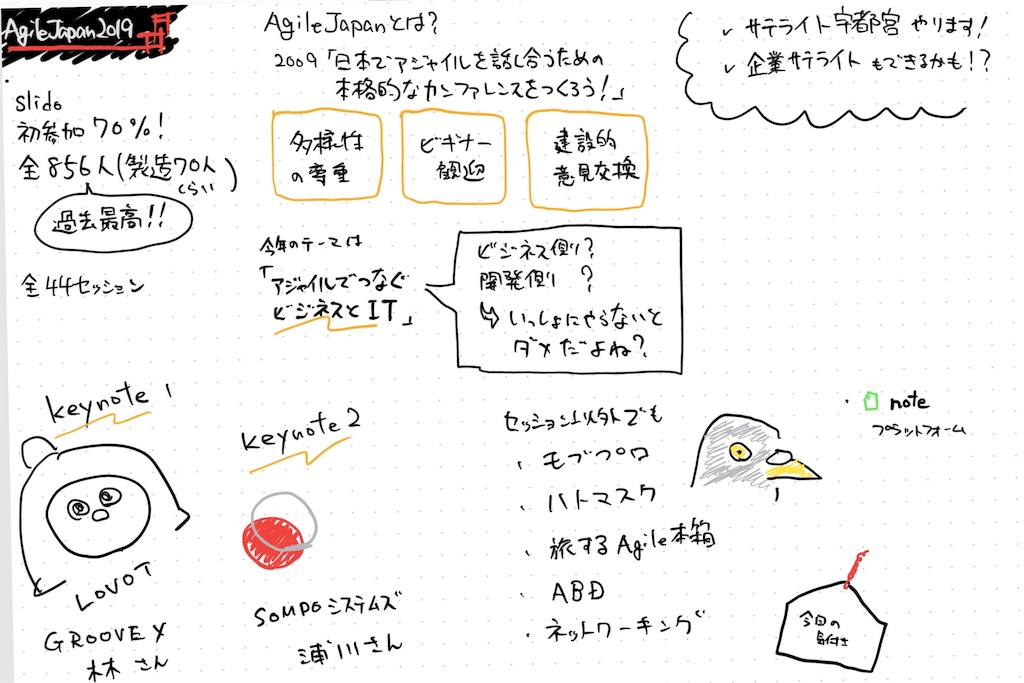 AgileJapan2019
slido
初参加 70%!
全856人(製造70人
くらい)
過去最高!!
全44セッション
AgileJapanとは?
2009「日本でアジャイルを話し合うための
本格的なカンファレンスをつくろう!」
多様性
の尊重
ビギナー
歓迎
建設的
意見交換
今年のテーマは
「アジャイルでつなぐ
ビジネスとIT」
ビジネス側?
開発側 ?
↳ いっしょにやらないと
ダメだよね?
✓ サテライト宇都宮 やります!
✓ 企業サテライト もできるかも!?
keynote 1
LOVOT
GROOVE X
林 さん
keynote 2
SOMPOシステムズ
浦川さん
セッション以外でも
・モブプロ
・ハトマスク
・旅するAgile本箱
・ABD
・ネットワーキング
・note
プラットフォーム
今日の
気付き